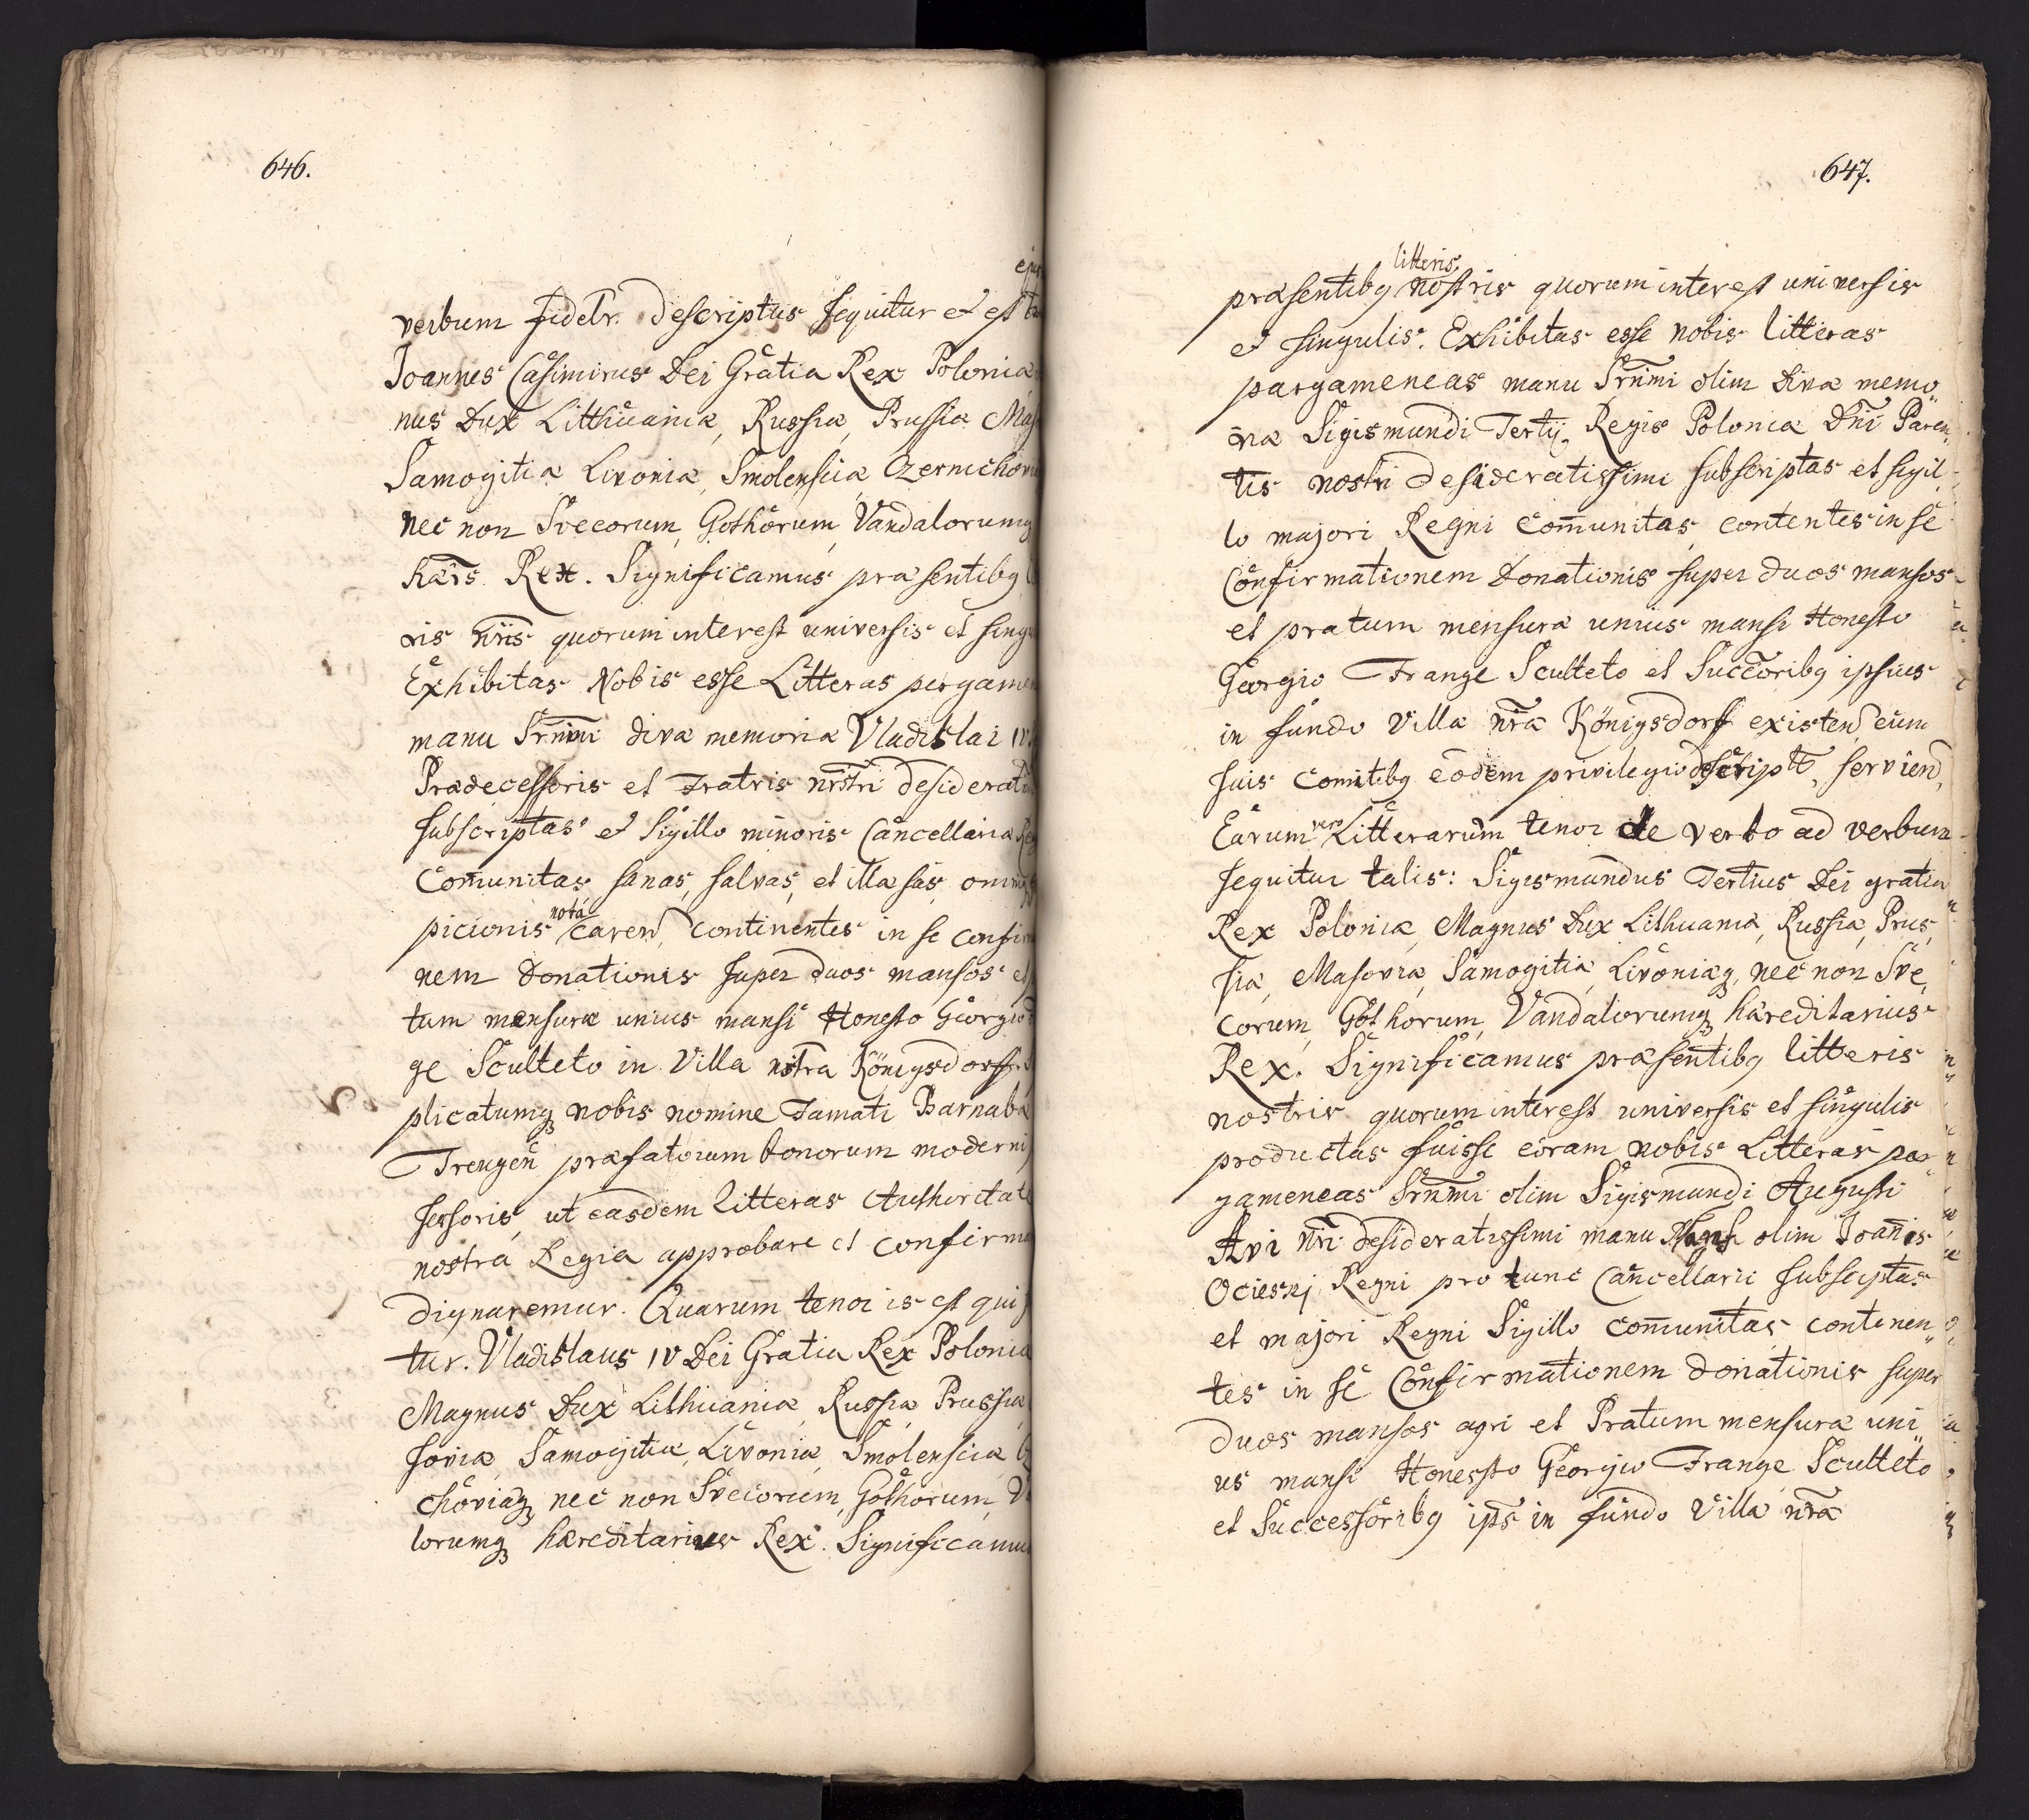 646.
verbum fidelr. descriptus sequitur et est
Joannes Casimirus Dei Gratia Rex Poloniæ
nus Dux Litthuaniæ, Russiæ, Prussiæ
Samogitiæ Livoniæ, Smolensciæ
nec non Svecorum, Gothorum, Vandalorumq
hærs. Rex. Significamus præsentibq
ris nris quorum interest universis et
Exhibitas Nobis esse Litteras
manu Srnmi divæ memoriæ Vladislai
Prædecessoris et Fratris nrstri
subscriptas et Sigillo minoris Cancellariæ
Com̃unitas, sanas, salvas, et illæsas,
picionis notâ caren, continentes in se
nem Donationis super duos mansos
tum mensuræ unius mansi Honesto Georgio
ge Sculteto in Villa nstra Königsdorff.
plicatumq nobis nomine Famati Barnabæ
Frengen præfatorum bonorum
sessoris, ut easdem litteras
nostrâ Regia approbare et
dignaremur. Quarum tenor is est qui
tur. Vladislaus IV Dei Gratia Rex Poloniæ
Magnus Dux Lithuaniæ, Russiæ, Prussiæ
soviæ, Samogitiæ, Livoniæ, Smolensciæ
choviæq nec non Svecorum, Gothorum,
lorumq hæreditarius Rex. Significamus
647.
præsentibq litteris nostris quorum interest universis
et singulis. Exhibitas esse nobis litteras
pargameneas manu Srnmi olim Divæ memo„
riæ Sigismundi Tertij, Regis Poloniæ Dñi Paren„
tis nostri desideratissimi subscriptas et sigil„
lo majori Regni com̃unitas, contentes in se
Confirmationem Donationis super duos mansos
et pratum mensuræ unius mansi Honesto
Georgio Frange Sculteto et Succ̃oribq ipsius
in fundo Villæ nr̃æ Königsdorff existen cum
suis comitibq eodem privilegio descript, servien
Earum vero Litterarum tenor de verbo ad verbum
sequitur talis: Sigismundus Tertius Dei gratia
Rex Poloniæ, Magnus Dux Lithuaniæ, Russiæ, Prus„
siæ, Masoviæ, Samogitiæ, Livoniæq, nec non Sve„
corum, Gothorum, Vandalorumq hæreditarius
Rex. Significamus præsentibq litteris
nostris quorum interest universis et singulis
productas fuisse coram nobis Litteras par„
gameneas Srnmi olim Sigismundi Augusti
Avi nri desideratissimi manu olim Joan̄is
Ocieskj Regni pro tunc Cancellarii subscriptas
et majori Regni Sigillo com̃unitas, continen„
tes in se Confirmationem donationis super
duos mansos agri et Pratum mensuræ uni„
us mansi Honesto Georgio Frange Sculteto
et Successoribq ips̃ in fundo Villæ nr̃æ